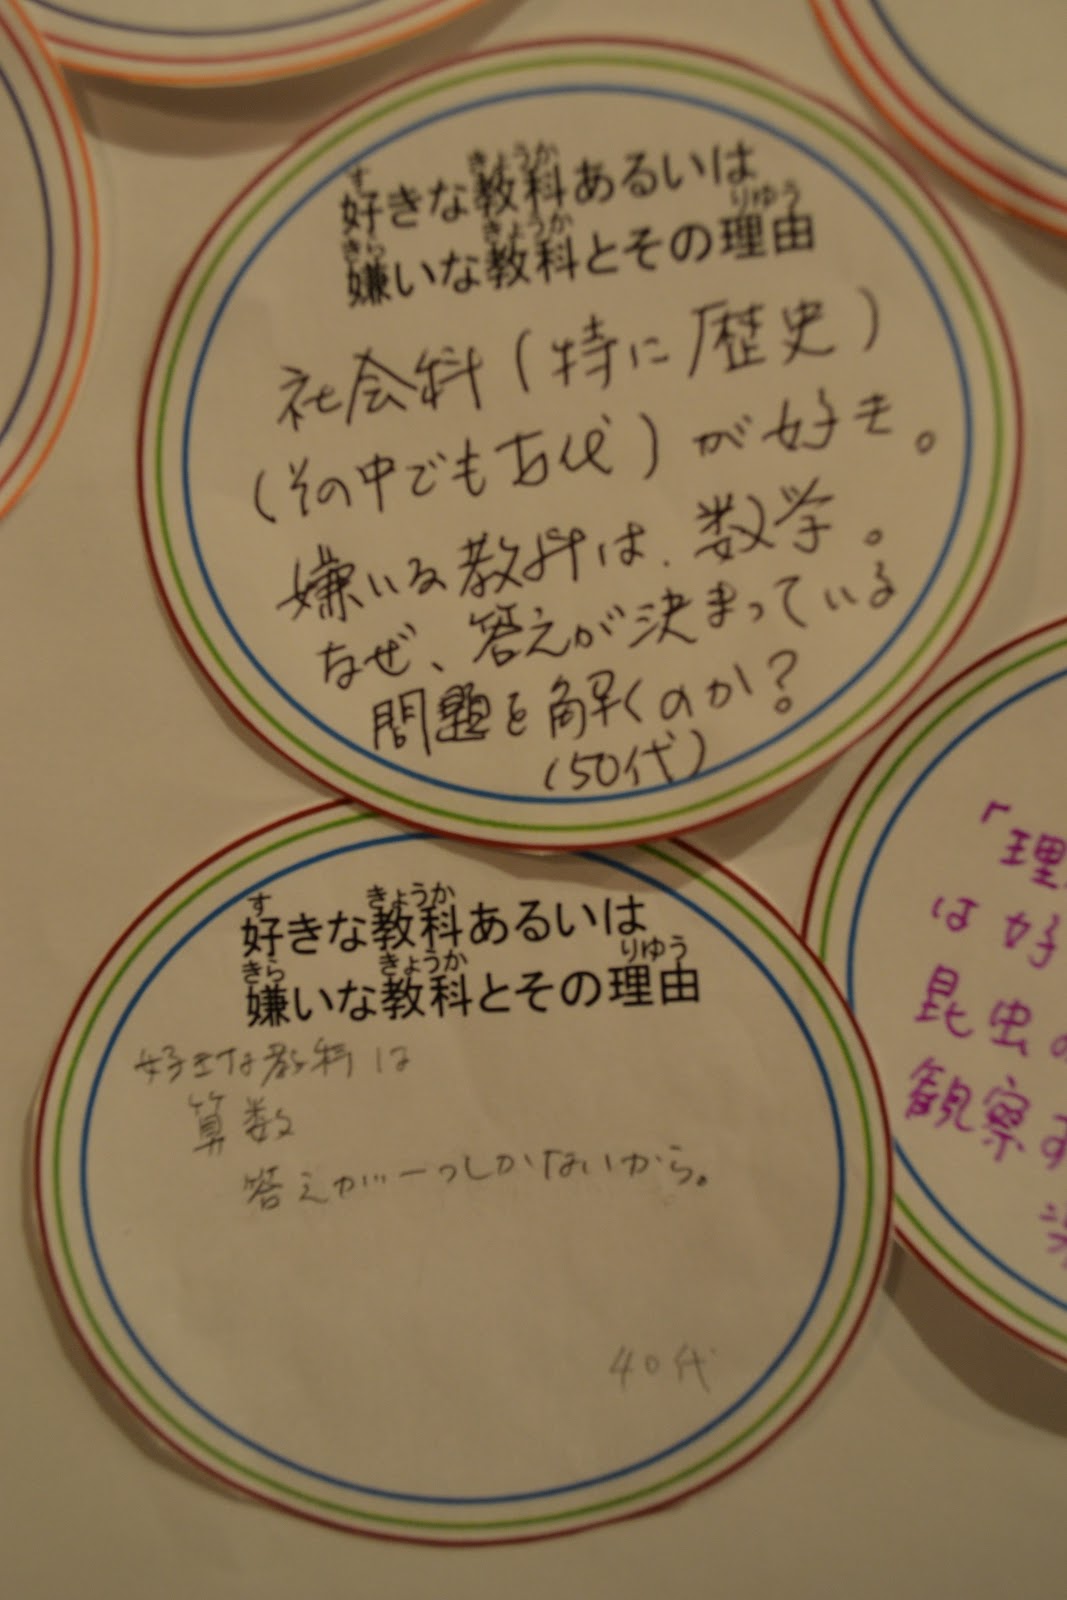 好きな教科あるいは
嫌いな教科とその理由
社会科(特に歴史)
(その中でも古代)が好き。
嫌いな教科は、数学。
なぜ、答えが決まっている
問題を解くのか?
(50代)
好きな教科あるいは
嫌いな教科とその理由
好きな教科は
算数
答えが一つしかないから。
40代
「理
は好
昆虫の
観察す